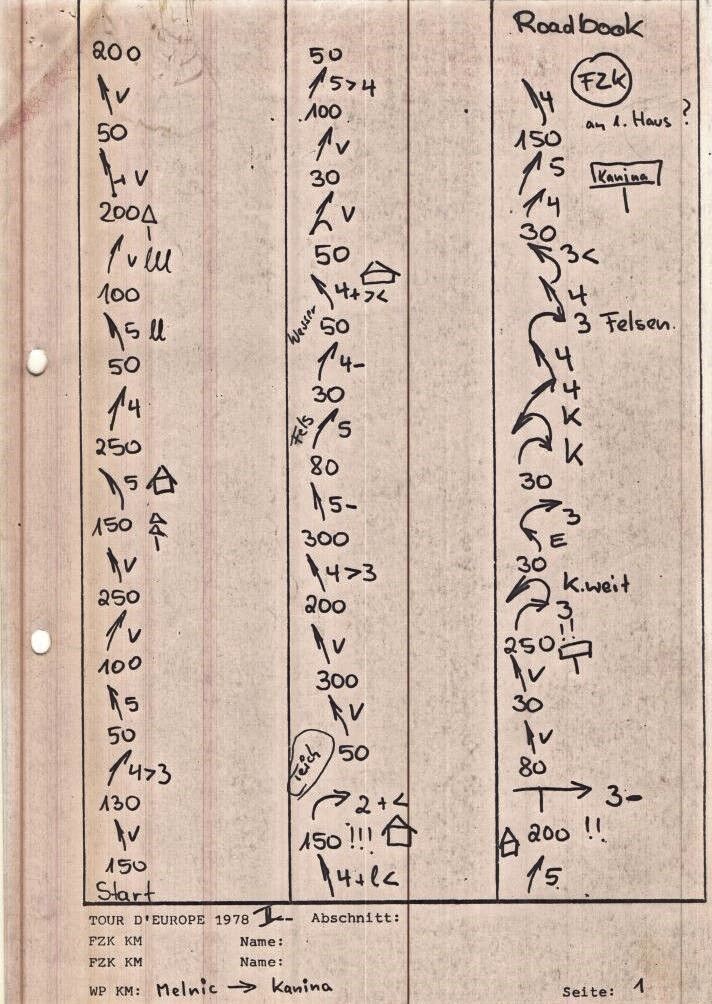 200
V
50
V
200
V lll
100
5 ll
50
4
250
5
150
V
250
V
100
5
50
4>3
130
V
150
Start
50
5>4
100
V
30
V
50
4+><
Wasser
50
4-
30
Fels
5
80
5-
300
4>3
200
V
300
V
50
Teich
2+<
150 !!!
4+l<
Roadbook
FZK
an 1. Haus ?
4
150
5
Kanina
4
30
3<
4
3 Felsen.
4
4
K
K
30
3
E
30
K.weit
3
250 !!
V
30
V
80
3-
200 !!
5
TOUR D'EUROPE 1978 I- Abschnitt:
FZK KM Name:
FZK KM Name:
WP KM: Melnic → Kanina
Seite: 1